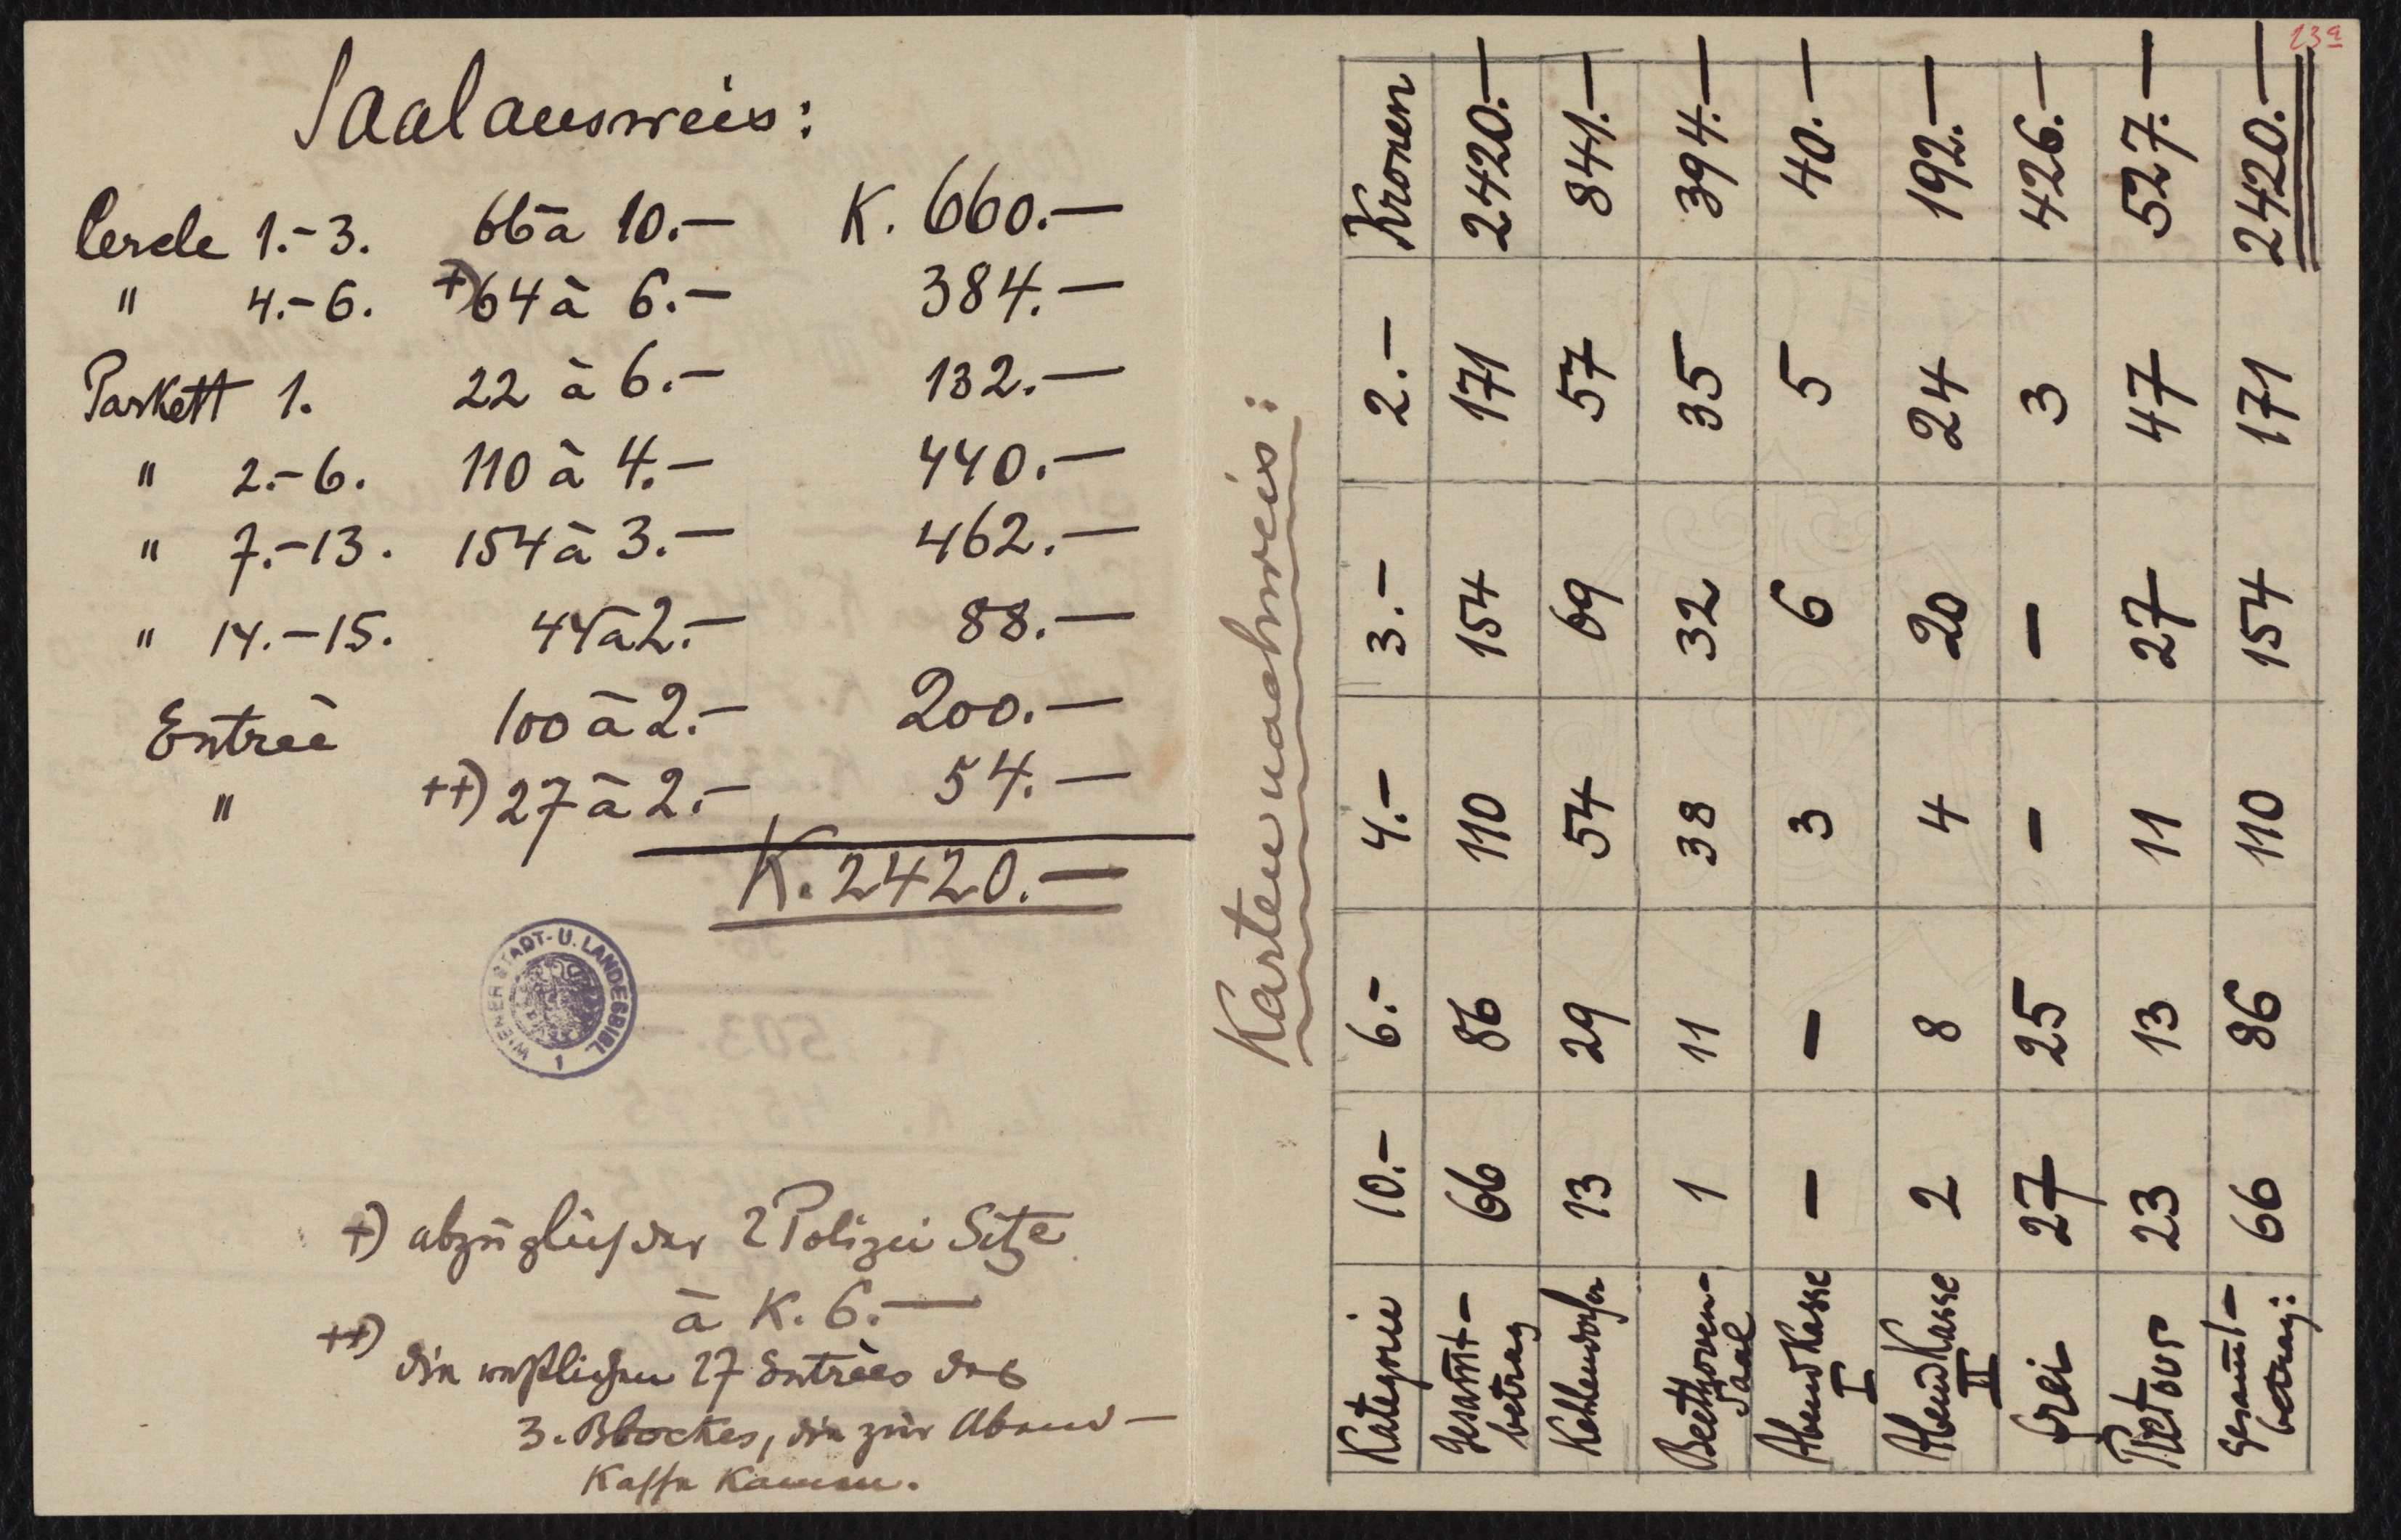 Saalausweis:
Cercle 1.-3. 66 à 10.- K. 660.-
" 4.-6. +) 64 à 6.- 384.-
Parkett 1. 22 à 6.- 132.-
" 2.-6. 110 à 4.- 440.-
" 7.-13. 154 à 3.- 462.-
" 14.-15. 44 à 2.- 88.-
Entreé 100 à 2.- 200.-
" ++) 27 à 2.- 54.-
K. 2420.-
WIENER STADT- U. LANDESBIBL.
+) abzüglich der 2 Polizei Sitze
à K. 6.-
++) die restlichen 27 Entrées des
3. Blockes, die zur Abend-
Kassa kamen.
23a
Kartennachweis:
Kategorie 10.- 6.- 4.- 3.- 2.- Kronen
Gesamt- 66 86 110 154 171 2420.-
betrag
Kehlendorfer 13 29 54 69 57 841.-
Beethoven- 1 11 38 32 35 394.-
Saal
Abend Kasse - - 3 6 5 40.-
I
Abend Kasse 2 8 4 20 24 192.-
II
Frei 27 25 - - 3 426.-
Retour 23 13 11 27 47 527.-
Gesamt- 66 86 110 154 171 2420.-
betrag: